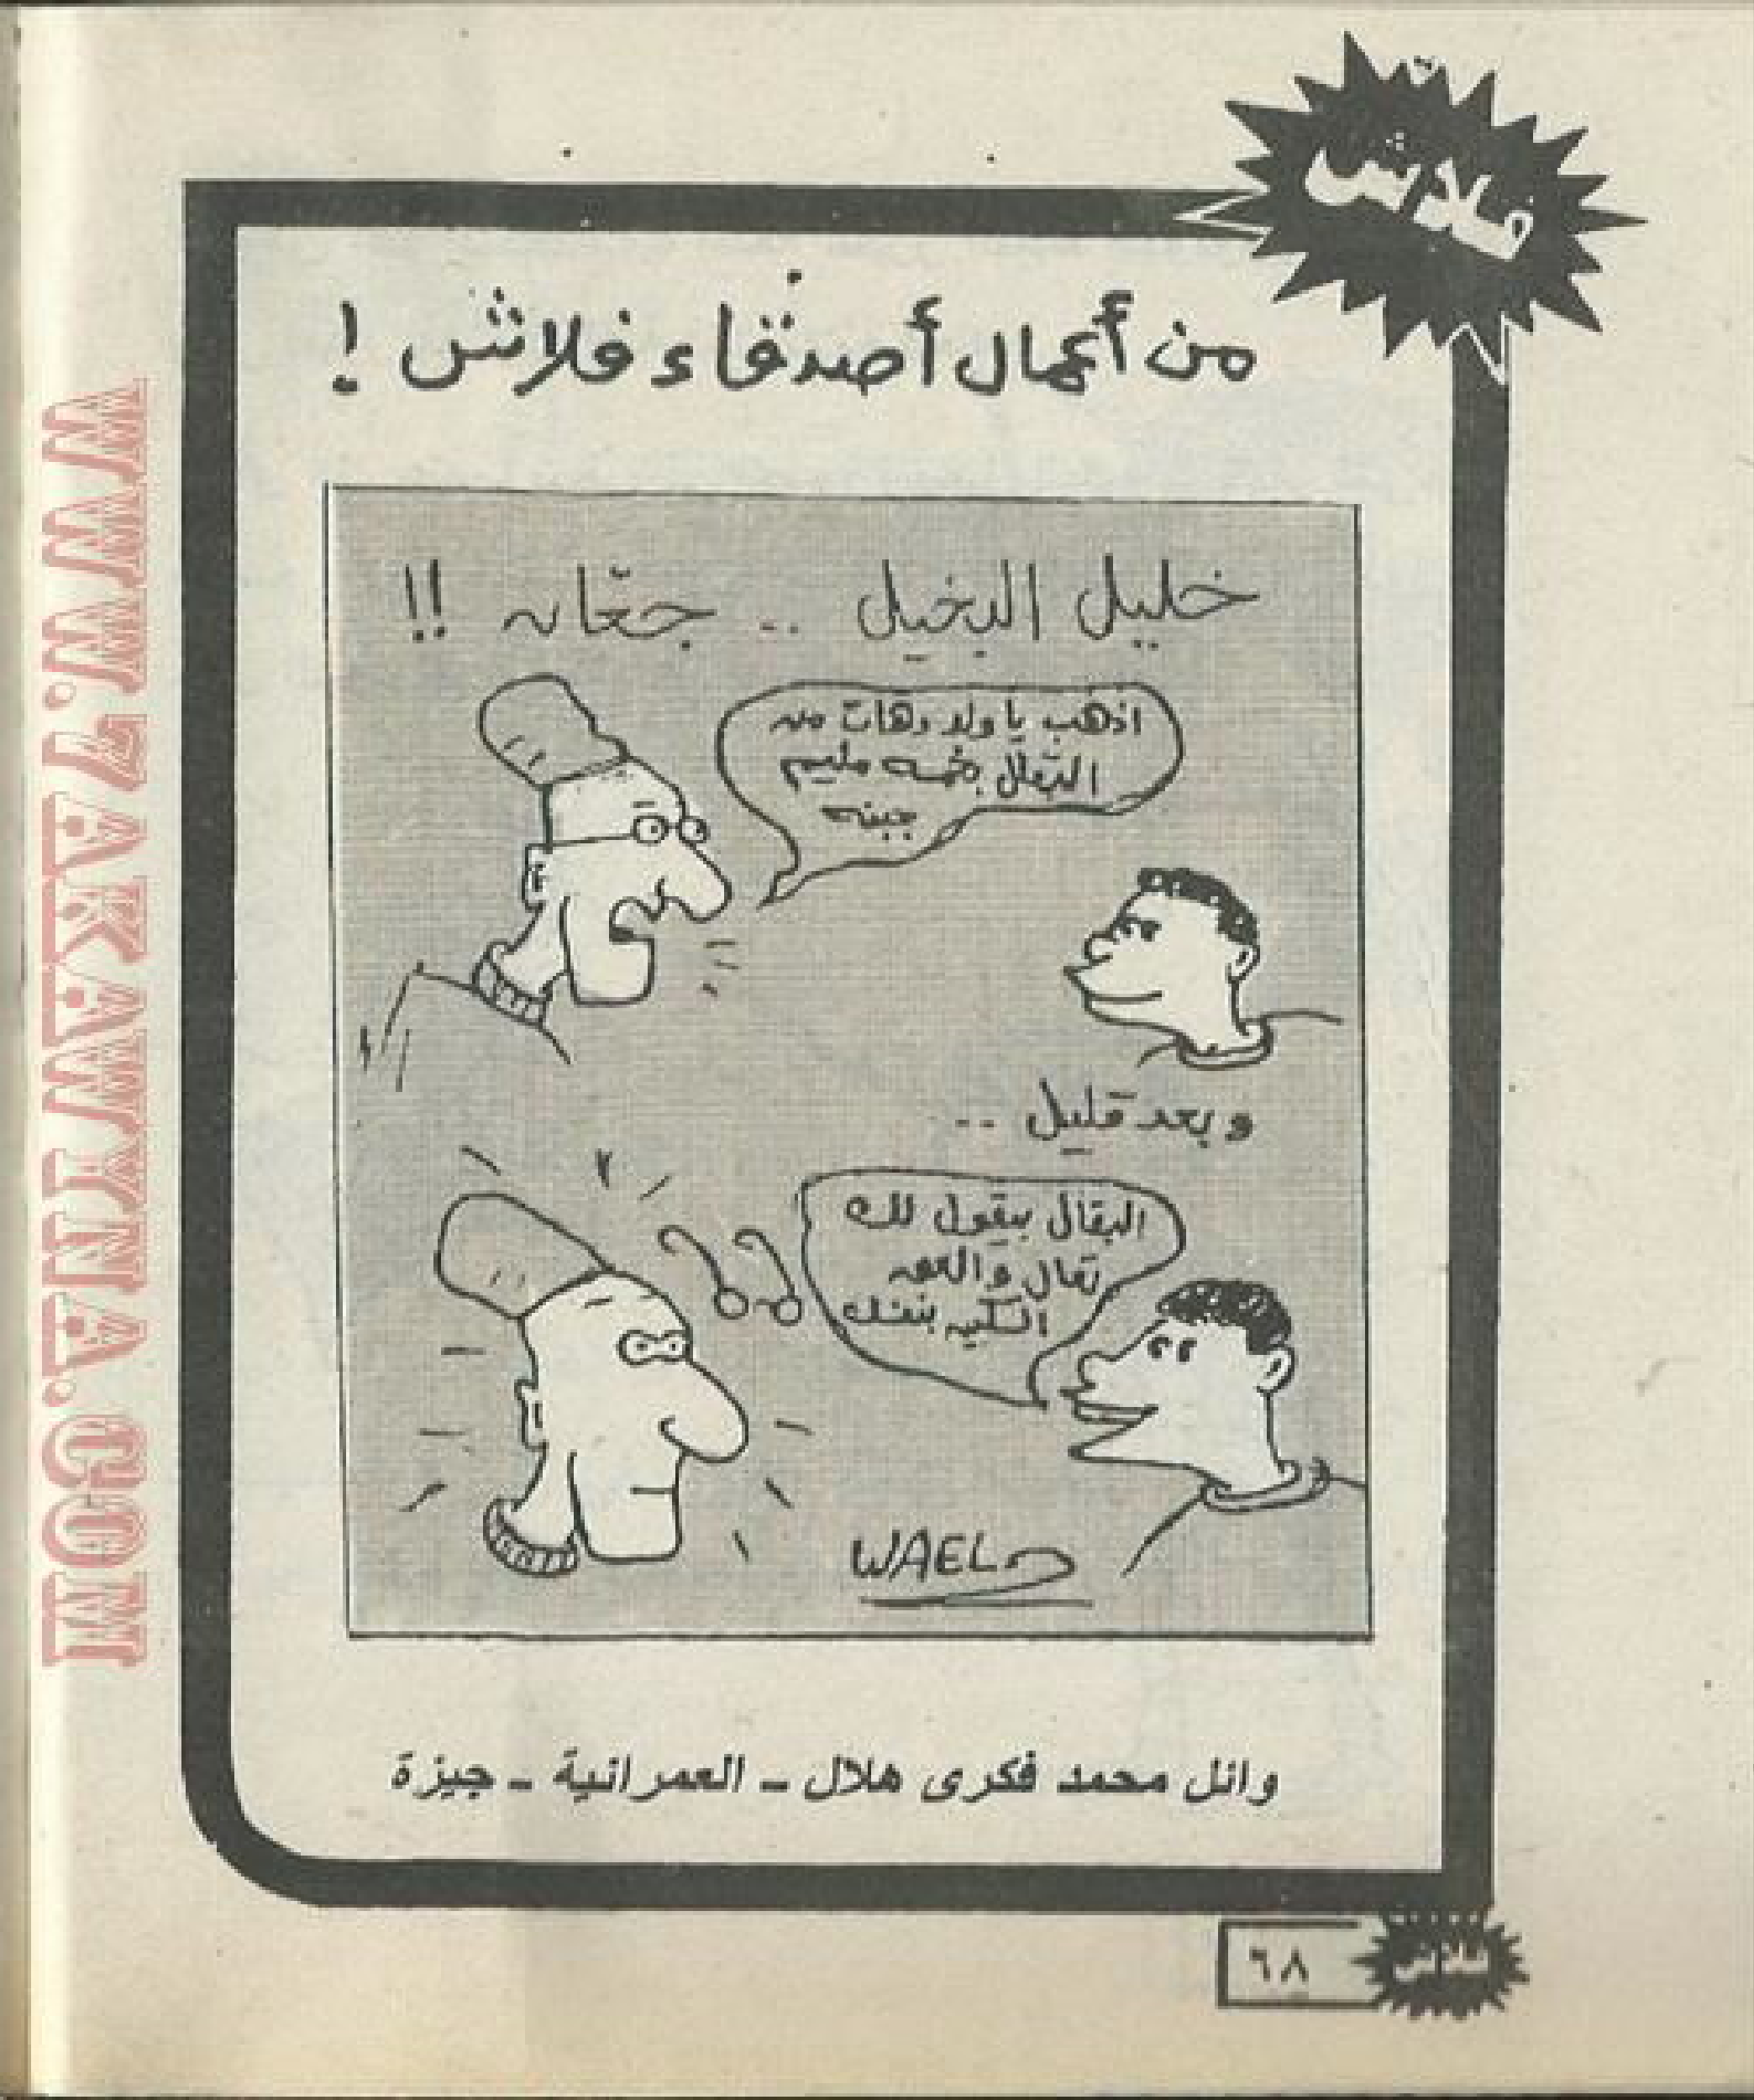 فلاش
من أعمال أصدقاء فلاش !
خليل البخيل .. جعّان !!
اذهب يا ولد وهات من
البقال بخمسه مليم
جبنه
وبعد قليل ..
البقال بيقول لك
تعال والعق
السكينه بنفسك
WAEL
وائل محمد فكرى هلال - العمرانية - جيزة
فلاش
٦٨